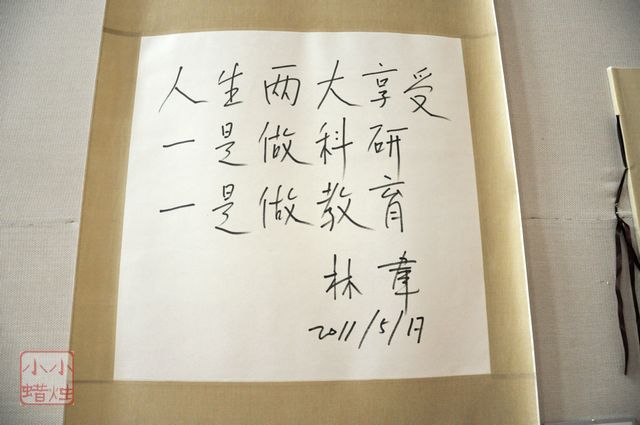 人生两大享受
一是做科研
一是做教育
林 葦
2011/5/17
小小
蜡烛